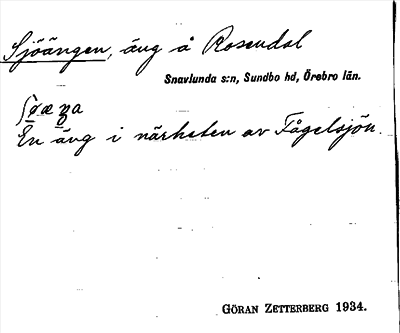 Sjöängen, äng å Rosendal
Snavlunda s:n, Sundbo hd, Örebro län.
En äng i närheten av Fågelsjön.
GÖRAN ZETTERBERG 1934.